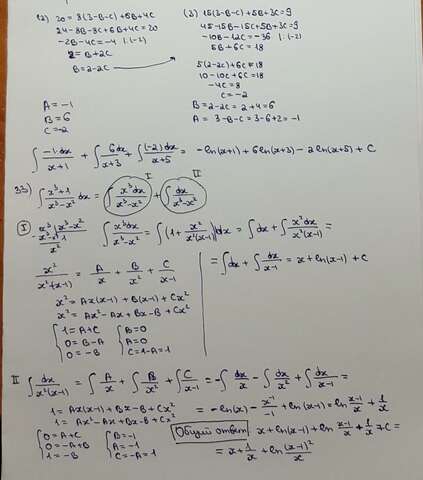 (2) 20 = 8(3-B-C) + 5B + 4C
24 - 8B - 8C + 5B + 4C = 20
-2B - 4C = -4 | :(-2)
2 = B + 2C
B = 2 - 2C
(3) 15(3-B-C) + 5B + 3C = 9
45 - 15B - 15C + 5B + 3C = 9
-10B - 12C = -36 | :(-2)
5B + 6C = 18
5(2-2C) + 6C = 18
10 - 10C + 6C = 18
-4C = 8
C = -2
A = -1
B = 6
C = -2
B = 2 - 2C = 2 + 4 = 6
A = 3 - B - C = 3 - 6 + 2 = -1
∫ -1·dx/(x+1) + ∫ 6dx/(x+3) + ∫ (-2)dx/(x+5) = -ln(x+1) + 6ln(x+3) - 2ln(x+5) + C
33) ∫ (x³+1)/(x³-x²) dx = ∫ x³dx/(x³-x²) + ∫ dx/(x³-x²)
I II
I x³ | x³-x²
x³-x² 1
x²
∫ x³dx/(x³-x²) = ∫ (1 + x²/(x²(x-1))) dx = ∫ dx + ∫ x²dx/(x²(x-1)) =
x²/(x²(x-1)) = A/x + B/x² + C/(x-1)
= ∫ dx + ∫ dx/(x-1) = x + ln(x-1) + C
x² = Ax(x-1) + B(x-1) + Cx²
x² = Ax² - Ax + Bx - B + Cx²
{ 1 = A + C { B = 0
0 = B - A A = 0
0 = -B C = 1 - A = 1
II ∫ dx/(x²(x-1)) = ∫ A/x + ∫ B/x² + ∫ C/(x-1) = -∫ dx/x - ∫ dx/x² + ∫ dx/(x-1) =
1 = Ax(x-1) + Bx - B + Cx² = -ln(x) - x⁻¹/-1 + ln(x-1) = ln (x-1)/x + 1/x
1 = Ax² - Ax + Bx - B + Cx²
{ 0 = A + C { B = -1
0 = -A + B A = -1
1 = -B C = -A = 1
Общий ответ: x + ln(x-1) + ln (x-1)/x + 1/x + C =
= x + 1/x + ln (x-1)²/x